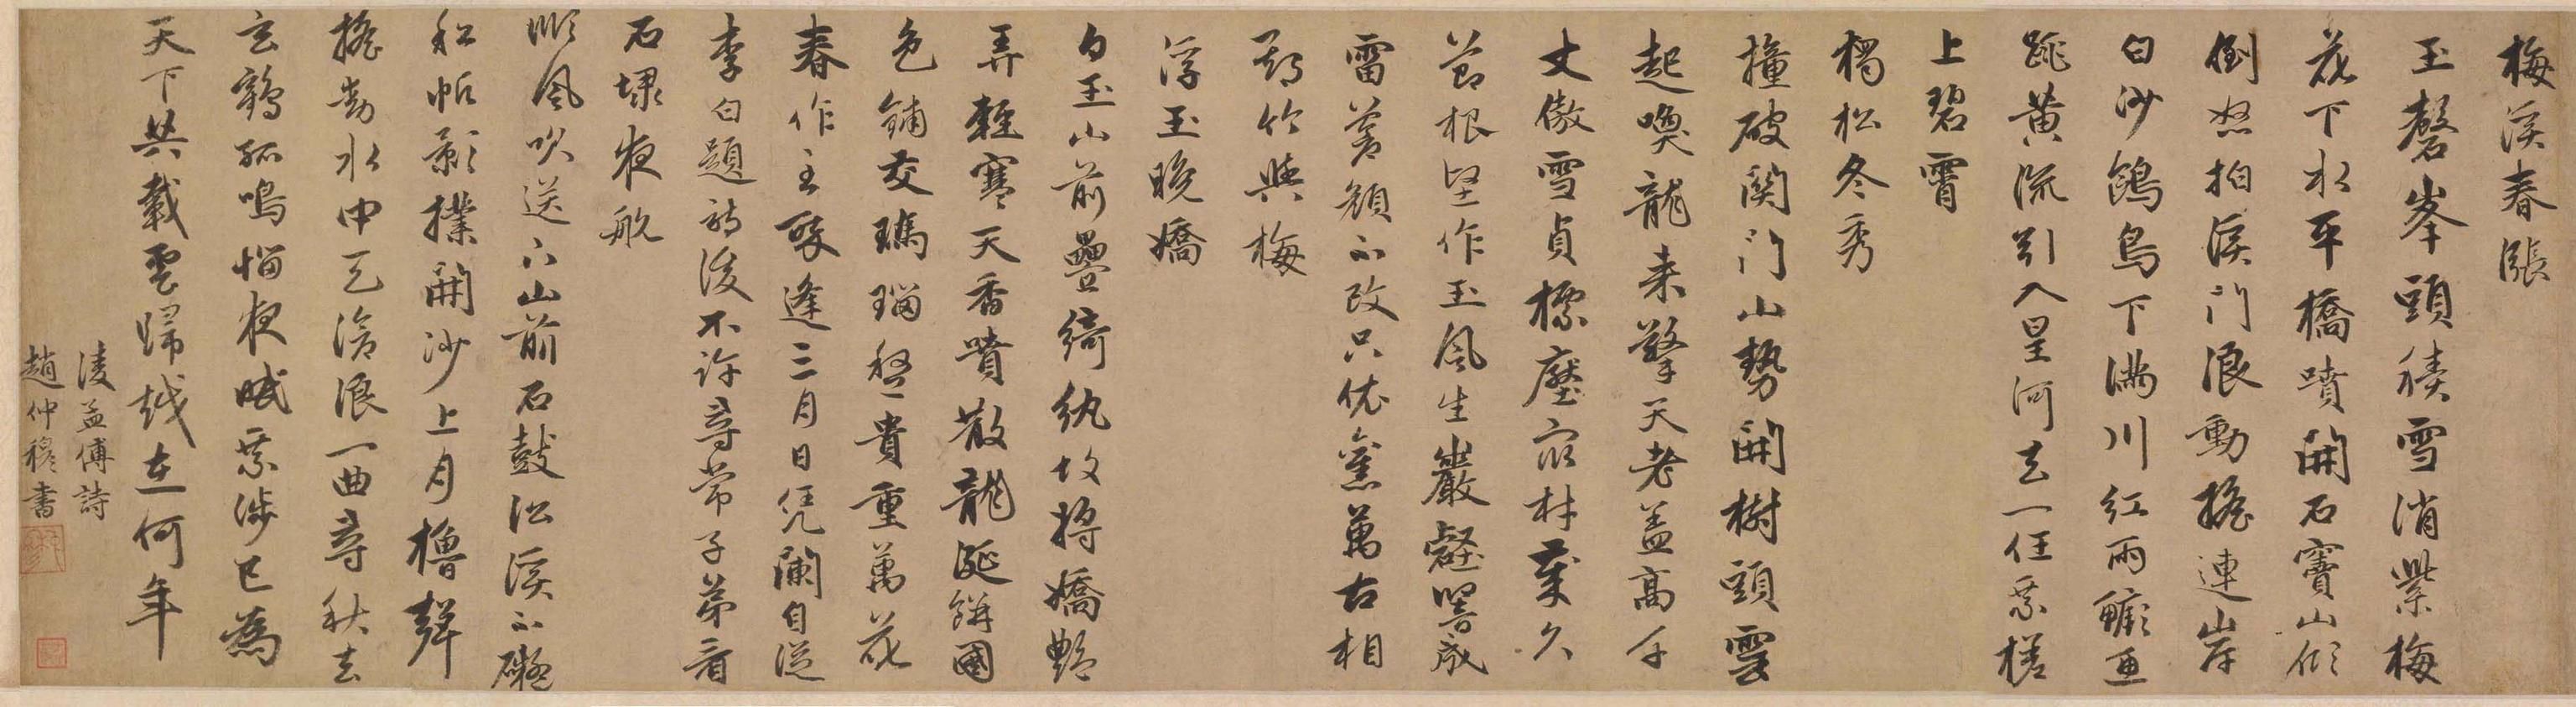 梅溪春漲
玉磬峯頭積雪消紫梅
花下水平橋噴開石竇山傾
倒怒拍溪門浪動搖連岸
白沙鷗鳥下滿川紅雨鱖魚
跳黃流引入星河去一任乘槎
上碧霄
楊松冬秀
撞破関門山勢開樹頭雲
起喚龍來擎天老蓋高千
丈傲雪貞標壓眾材歲久
節根堅作玉風生巖壑響成
雷蒼顏不改只依舊萬古相
期竹與梅
浮玉晚嬌
白玉山前疊綺紈故將嬌艷
弄輕寒天香噴散龍涎餅國
色鋪交瑪瑙盤貴重萬花
春作主繁逢三月日凭闌自從
李白題詩後不許尋常子弟看
石埭夜航
順風吹送下山前石鼓江溪不礙
船帆影撲開沙上月櫓聲
搖動水中天滄浪一曲尋秋去
玄鶴孤鳴惱夜眠乘涉已為
天下共載雲歸越在何年
淩孟傅詩
趙仲穆書